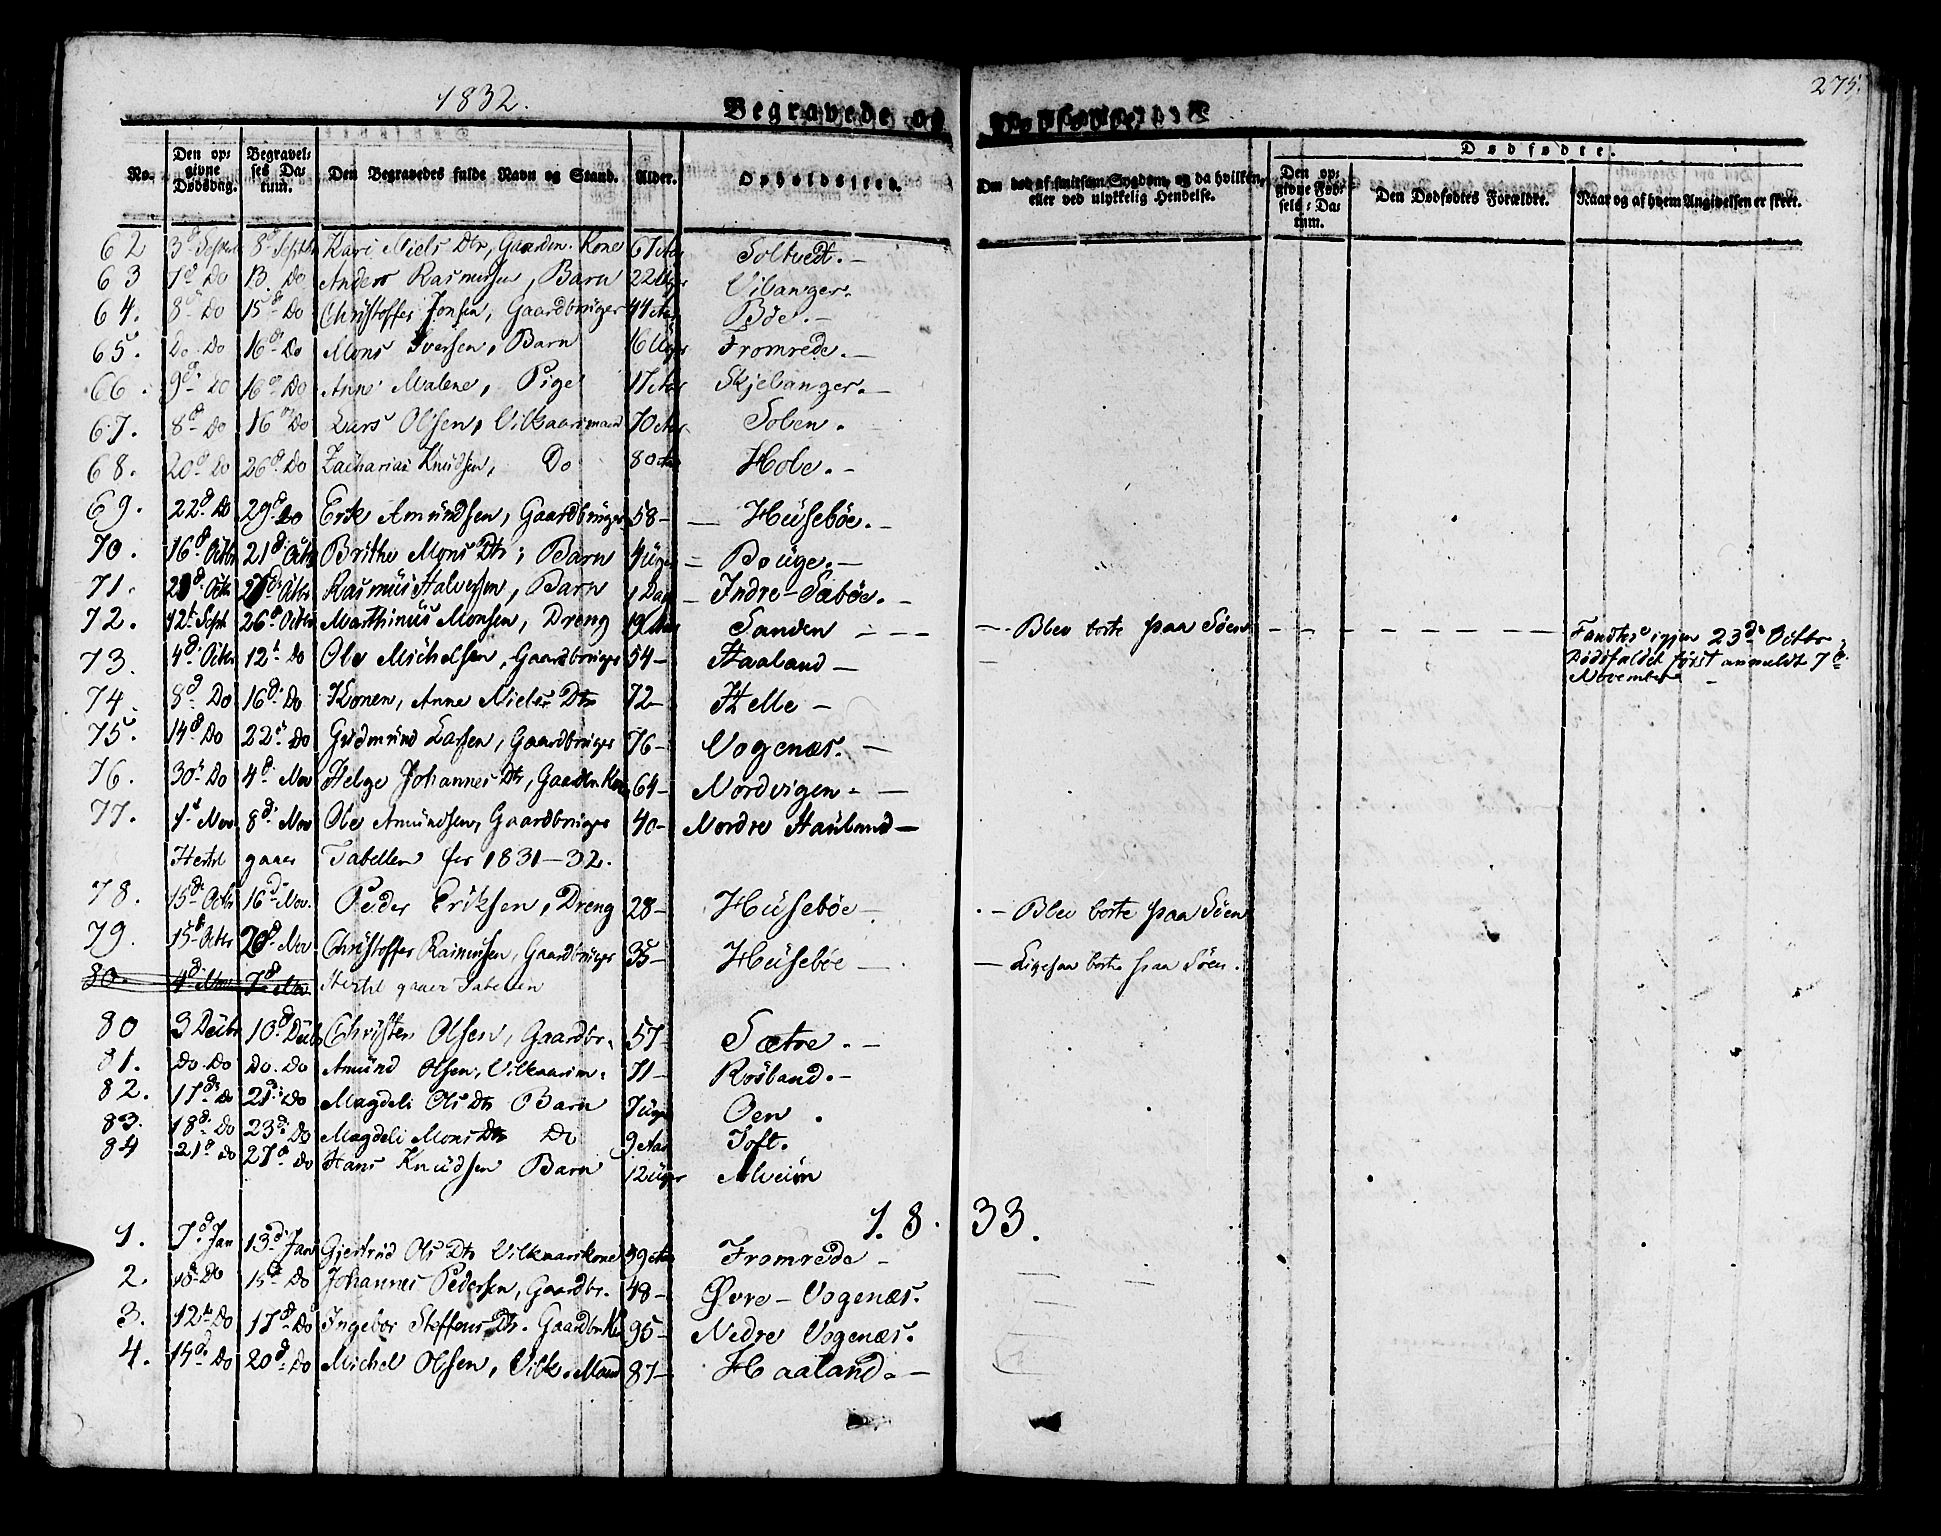 1832.
275.
Begravede og Dødfødte
No.
Den opgivne Dødsdag.
Begravelses Datum.
Den Begravedes fulde Navn og Stand.
Alder.
Opholdssted.
Om død af smitsom Sygdom, og da hvilken, eller ved ulykkelig Hendelse.
Dødfødte.
Den opgivne Fødsels-Datum.
Den Dødfødtes Forældre.
Naar og af hvem Angivelsen er skeet.
62 3d Septbr 8d Septbr Kari Niels Dtr, Gaardm. Kone 67 Aar Soltvedt.-
63 7d Do 13. Do Anders Rasmusen, Barn 22 Uger Vibanger.
64. 8d Do 15d Do Christoffer Jonsen, Gaardbruger 44 Aar Böe.-
65. Do. Do 16d Do Mons Iversen, Barn 16 Uger Fromrede.-
66. 9d Do 16d Do Anne Malene, Pige 17 Aar Skjelanger.-
67. 8d Do 16d Do Lars Olsen, Vilkaarsmand 70 Aar Solen.
68. 20d Do 26d Do Zacharias Knudsen, Do 80 Aar Hole.-
69. 22d Do 29d Do Erik Amundsen, Gaardbruger 58- Husebøe.-
70. 16d Octbr 21d Octbr Brithe Mons Dtr, Barn 4 Uger Bouge.-
71. Octbr Octbr Rasmus Halvorsen, Barn 1 Dag Indre-Sæbøe.-
72. 12t Sept 26d Octbr Marthinus Monsen, Dreng 19 Aar Sanden - Blev borte paa Søen - Fandtes igjen 23d Octbr; Dødsfaldet først anmeldt 7d November
73. 4d Octbr 12t Do Ole Michelsen, Gaardbruger 54- Haaland-
74. 8d Do 16d Do Konen, Anne Niels Dtr 72- Helle-
75. 14d Do 22d Do Gudmund Larsen, Gaardbruger 76- Vogenæs.-
76. 30t Do 4d Nov Helge Johannes Dtr, Gaardm. Kone 64- Nordvigen.-
77. 1t Nov 8d Nov Ole Amundsen, Gaardbruger 40- Nordre Hauland-
Hertil gaaer Tabellen for 1831-32.
78. 15d Octbr 16d Nov. Peder Eriksen, Dreng 28- Husebøe- - Blev borte paa Søen
79. 15d Octbr 20d Nov Christoffer Rasmusen, Gaardbruger 35- Husebøe- - Ligesaa borte paa Søen.
80. 4d Nov 7d Nov Hertil gaaer Tabellen
80 3 Decbr 10d Decbr Christen Olsen, Gaardbr. 57- Sætre.-
81. Do. Do Do. Do Amund Olsen, Vilkaarsm. 71- Rosland.-
82. 17d Do 21d Do Magdeli Ols Dtr Barn 7 Uger Oen.
83. 18d Do 23d Do Magdeli Mons Dtr Do 9 Aar Toft.
84 21d Do 27d Do Hans Knudsen Barn 12 Uger Alveim
1833.
1. 7d Jan 13d Jan Gjertrud Ols Dtr Vilkaarskone 39 Aar Fromrede-
2. 10d Do 15d Do Johannes Pedersen, Gaardbr. 48- Øvre-Vogenæs.
3. 12t Do 17d Do Ingebor Steffens Dtr. Gaardbr. K 95- Nedre Vogenæs.
4. 14d Do 20d Do Michel Olsen, Vilk. Mand 87- Haaland.-